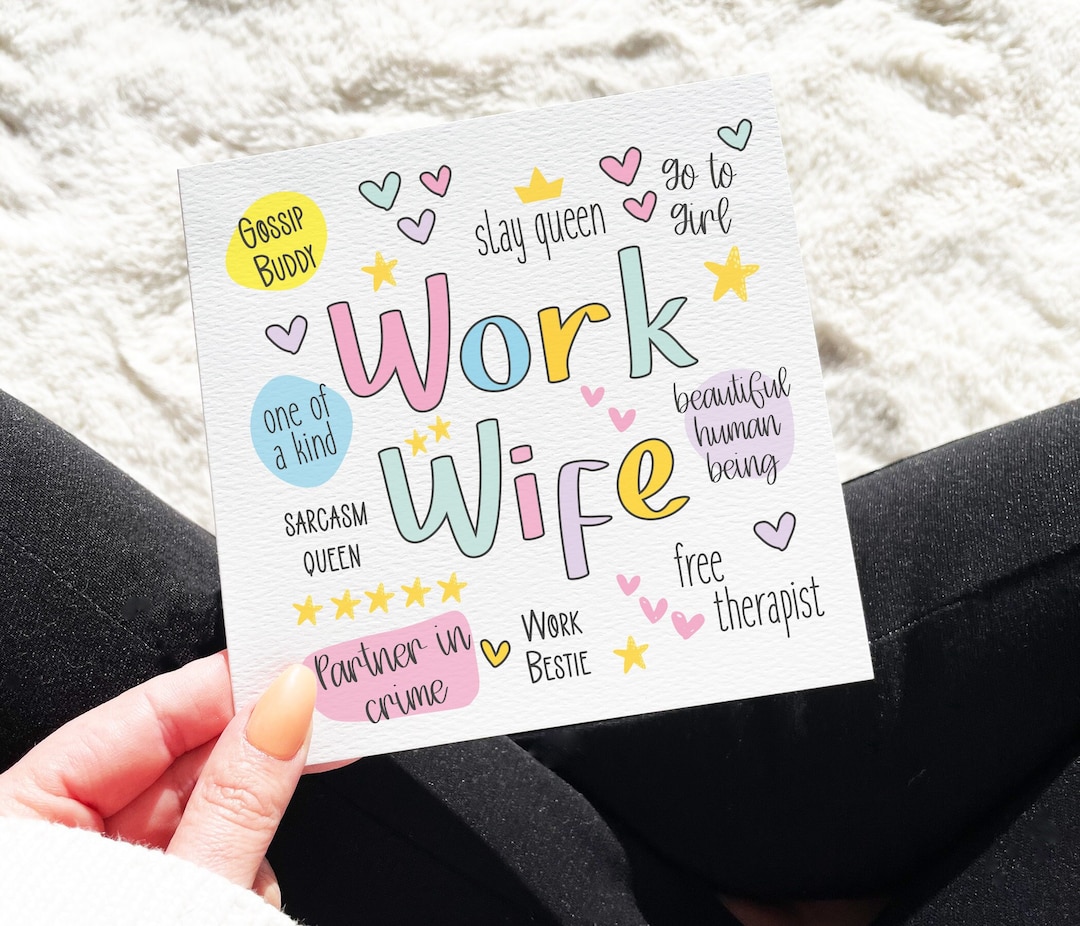 Gossip
Buddy
slay queen
go to
girl
Work
Wife
one of
a kind
beautiful
human
being
SARCASM
QUEEN
free
therapist
Partner in
crime
Work
Bestie